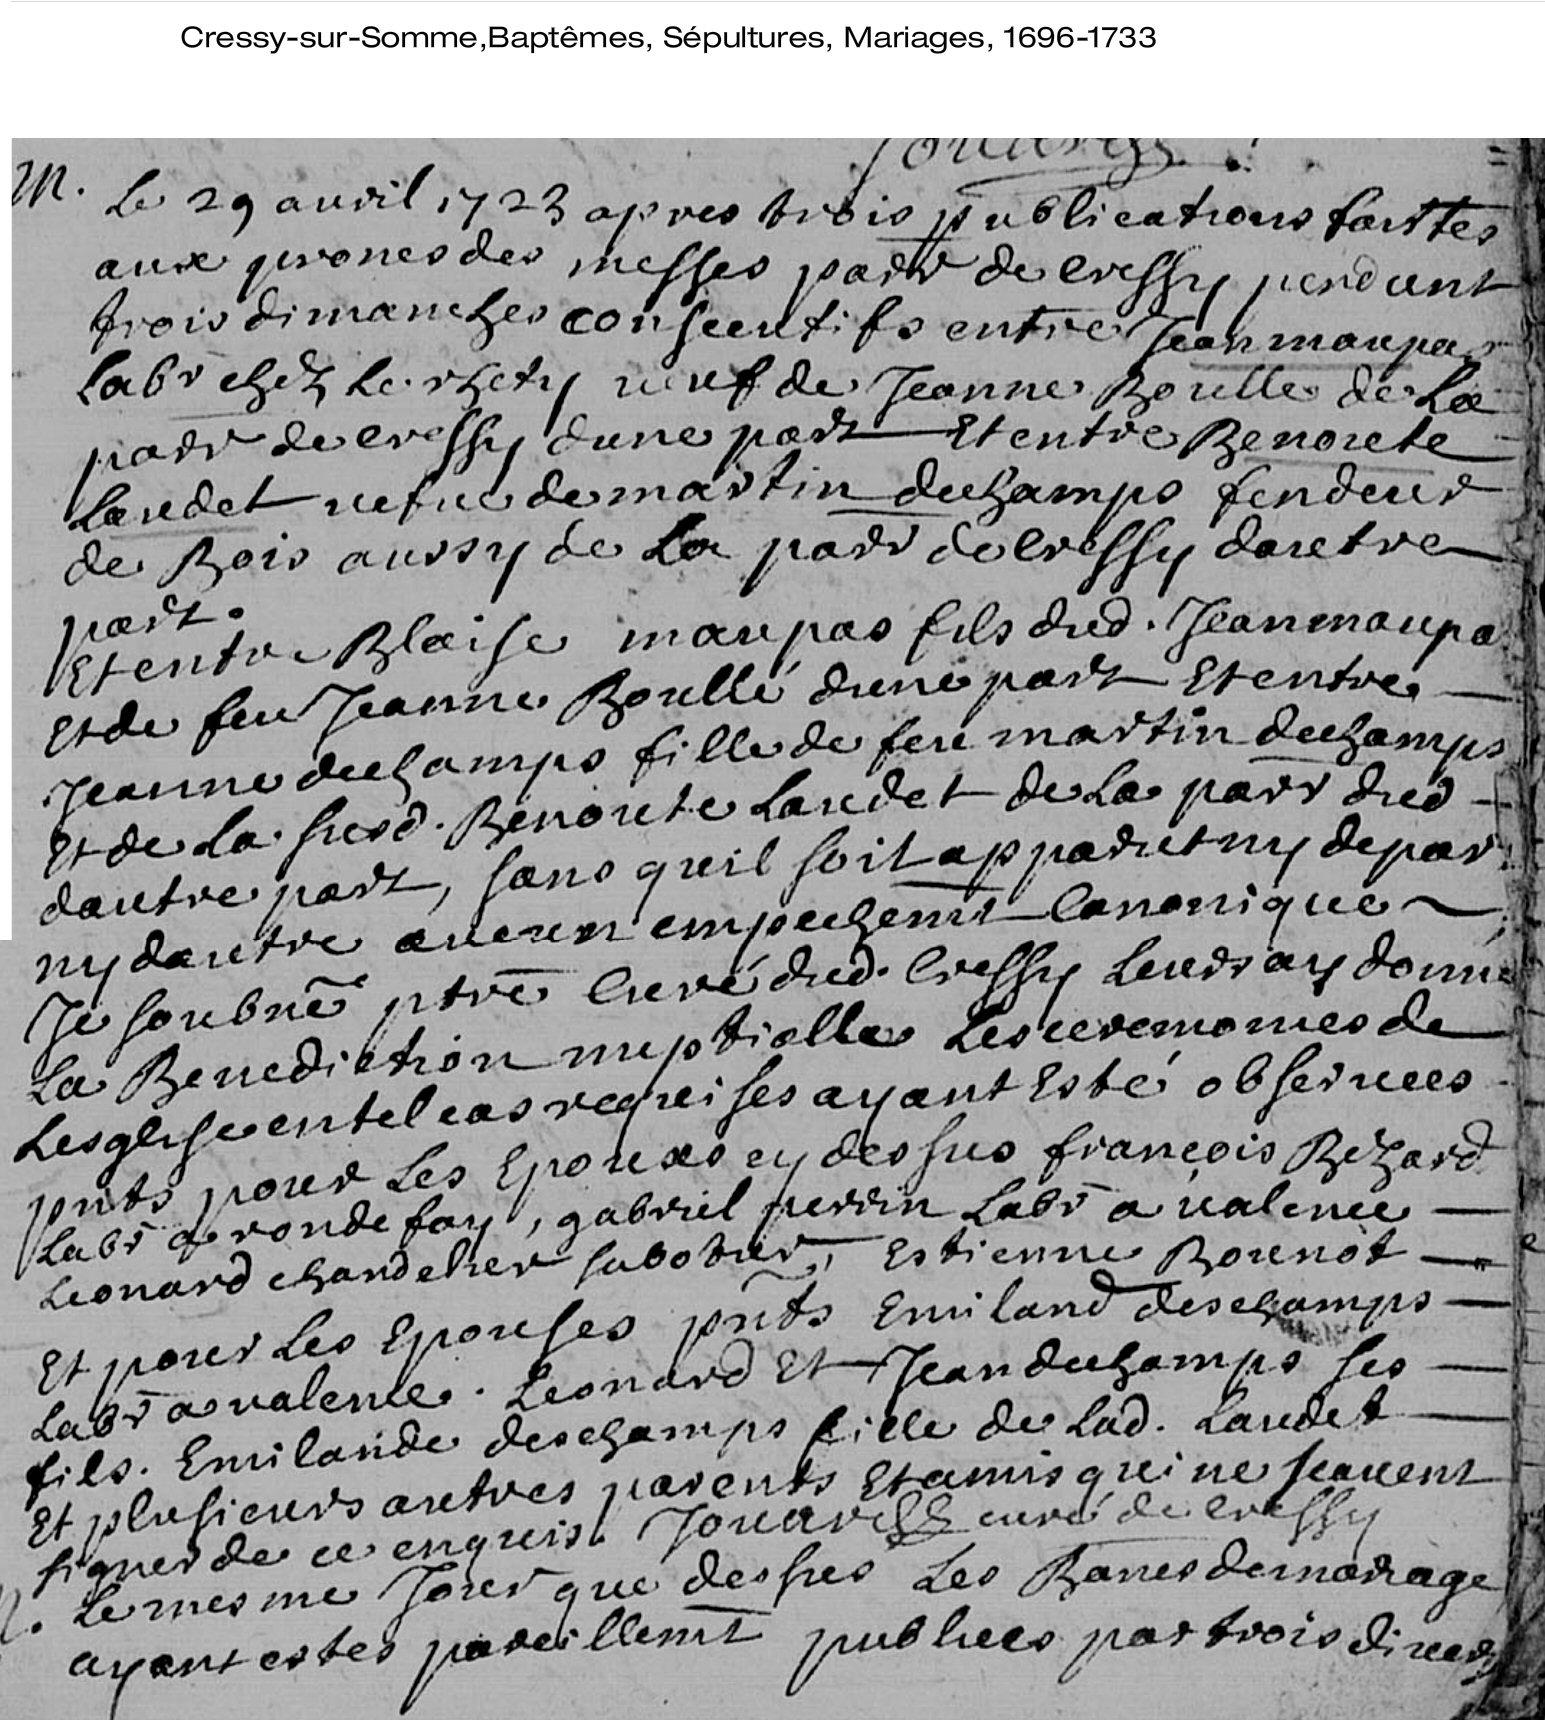 Cressy-sur-Somme,Baptêmes, Sépultures, Mariages, 1696-1733
M. Le 29 auril 1723 apres trois publications faittes
aux prones des messes parr de Cressy pendant
trois dimanches consecutifs entre Jean maupas
Labr chez Le veuf de Jeanne Boulle de La
parr de Cressy dune part Et entre Benoite
Laudet vefue de martin dechamps fendeur
de Bois aussy de La parr de Cressy dautre
part.
Et entre Blaise maupas fils dud. Jean maupa
Et de feu Jeanne Boullé dune part Et entre
Jeanne dechamps fille de feu martin dechamps
Et de La susd. Benoite Laudet de La parr dud
dautre part, sans quil soit apparut ny de part
ny dautre aucun empechemt Canonique
Je soubne ptre Curé dud. Cressy Leurs ay donné
La Benediction nuptialle Les ceremonies de
Lesglise en tel cas requises ayant Esté obseruees
pnts pour Les Epouxs cy dessus françois Bezard
Labr a ronde fay, gabriel perrin Labr a valence
Leonard chandelier sabotier, Estienne Bounot
Et pour Les Epouses pnts Emiland deschamps
Labr a valence. Leonard Et Jean dechamps ses
fils. Emilande deschamps fille de Lad. Laudet
Et plusieurs autres parents Et amis qui ne scauent
signer de ce enquis. curé de Cressy
Le mesme Jour que dessus Les Bancs de mariage
ayant estes pareillemt publiees par trois diuers